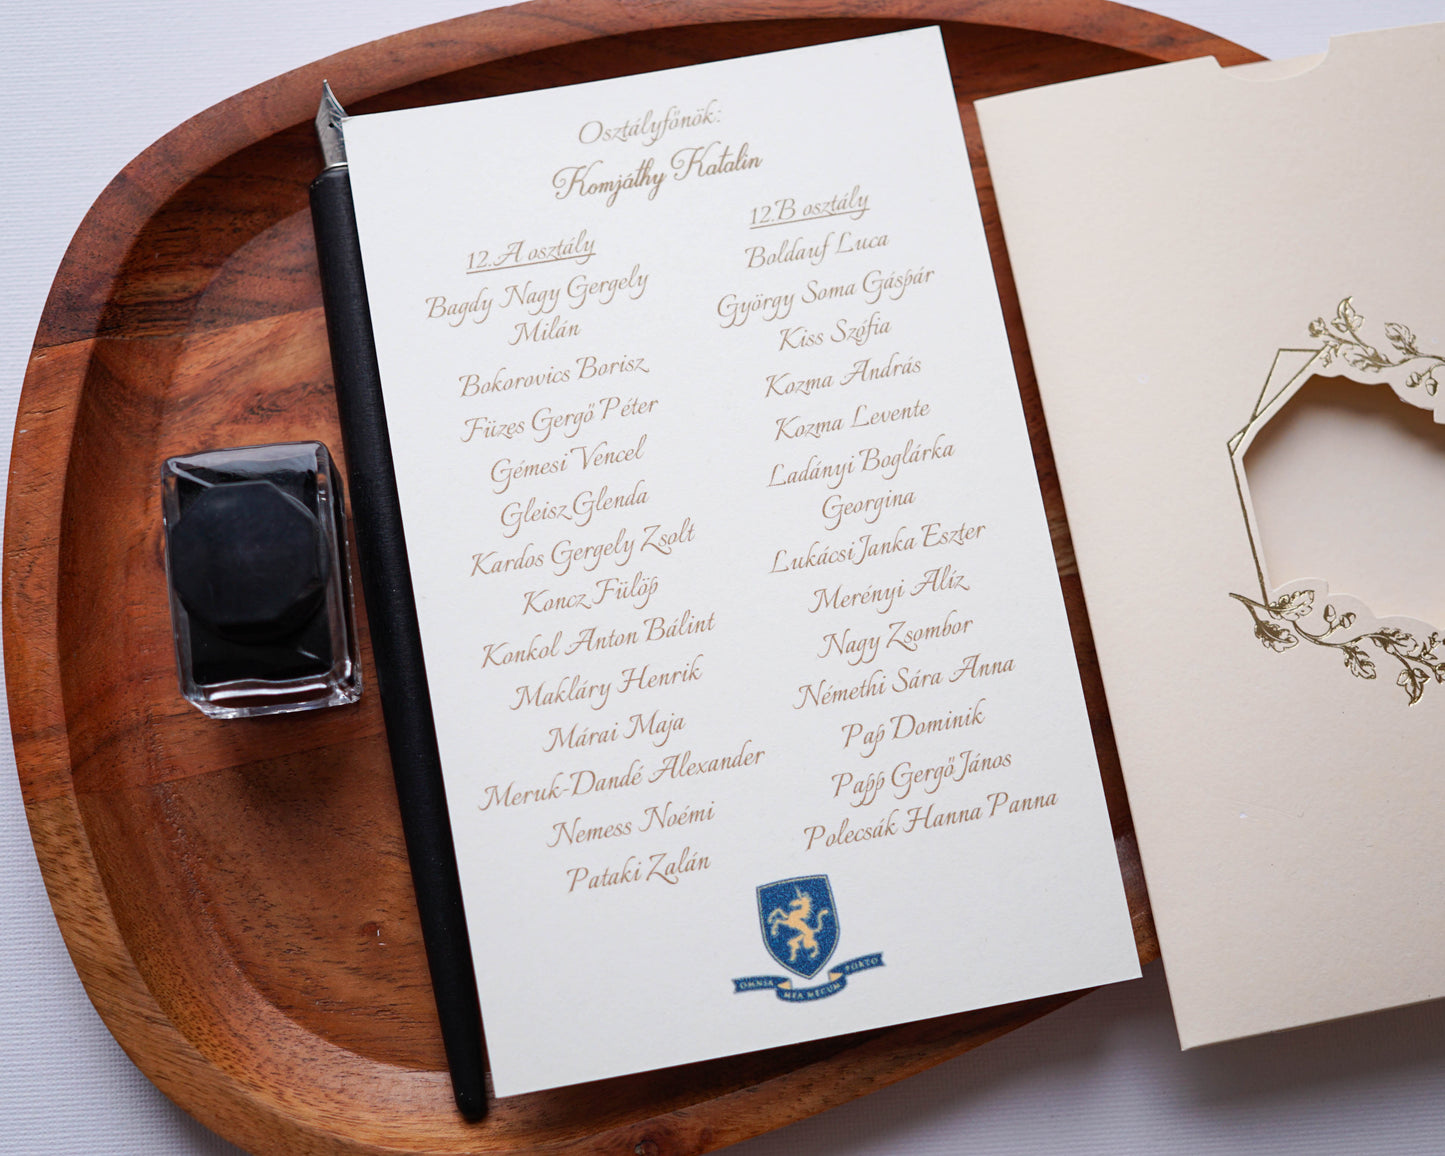 Osztályfőnök:
Komjáthy Katalin
12.A osztály
Bagdy Nagy Gergely
Milán
Bokorovics Borisz
Füzes Gergő Péter
Gémesi Vencel
Gleisz Glenda
Kardos Gergely Zsolt
Koncz Fülöp
Konkol Anton Bálint
Makláry Henrik
Márai Maja
Meruk-Dandé Alexander
Nemess Noémi
Pataki Zalán
12.B osztály
Boldauf Luca
György Soma Gáspár
Kiss Szófia
Kozma András
Kozma Levente
Ladányi Boglárka
Georgina
Lukácsi Janka Eszter
Merényi Alíz
Nagy Zsombor
Némethi Sára Anna
Pap Dominik
Papp Gergő János
Polecsák Hanna Panna
OMNIA MEA MECUM PORTO